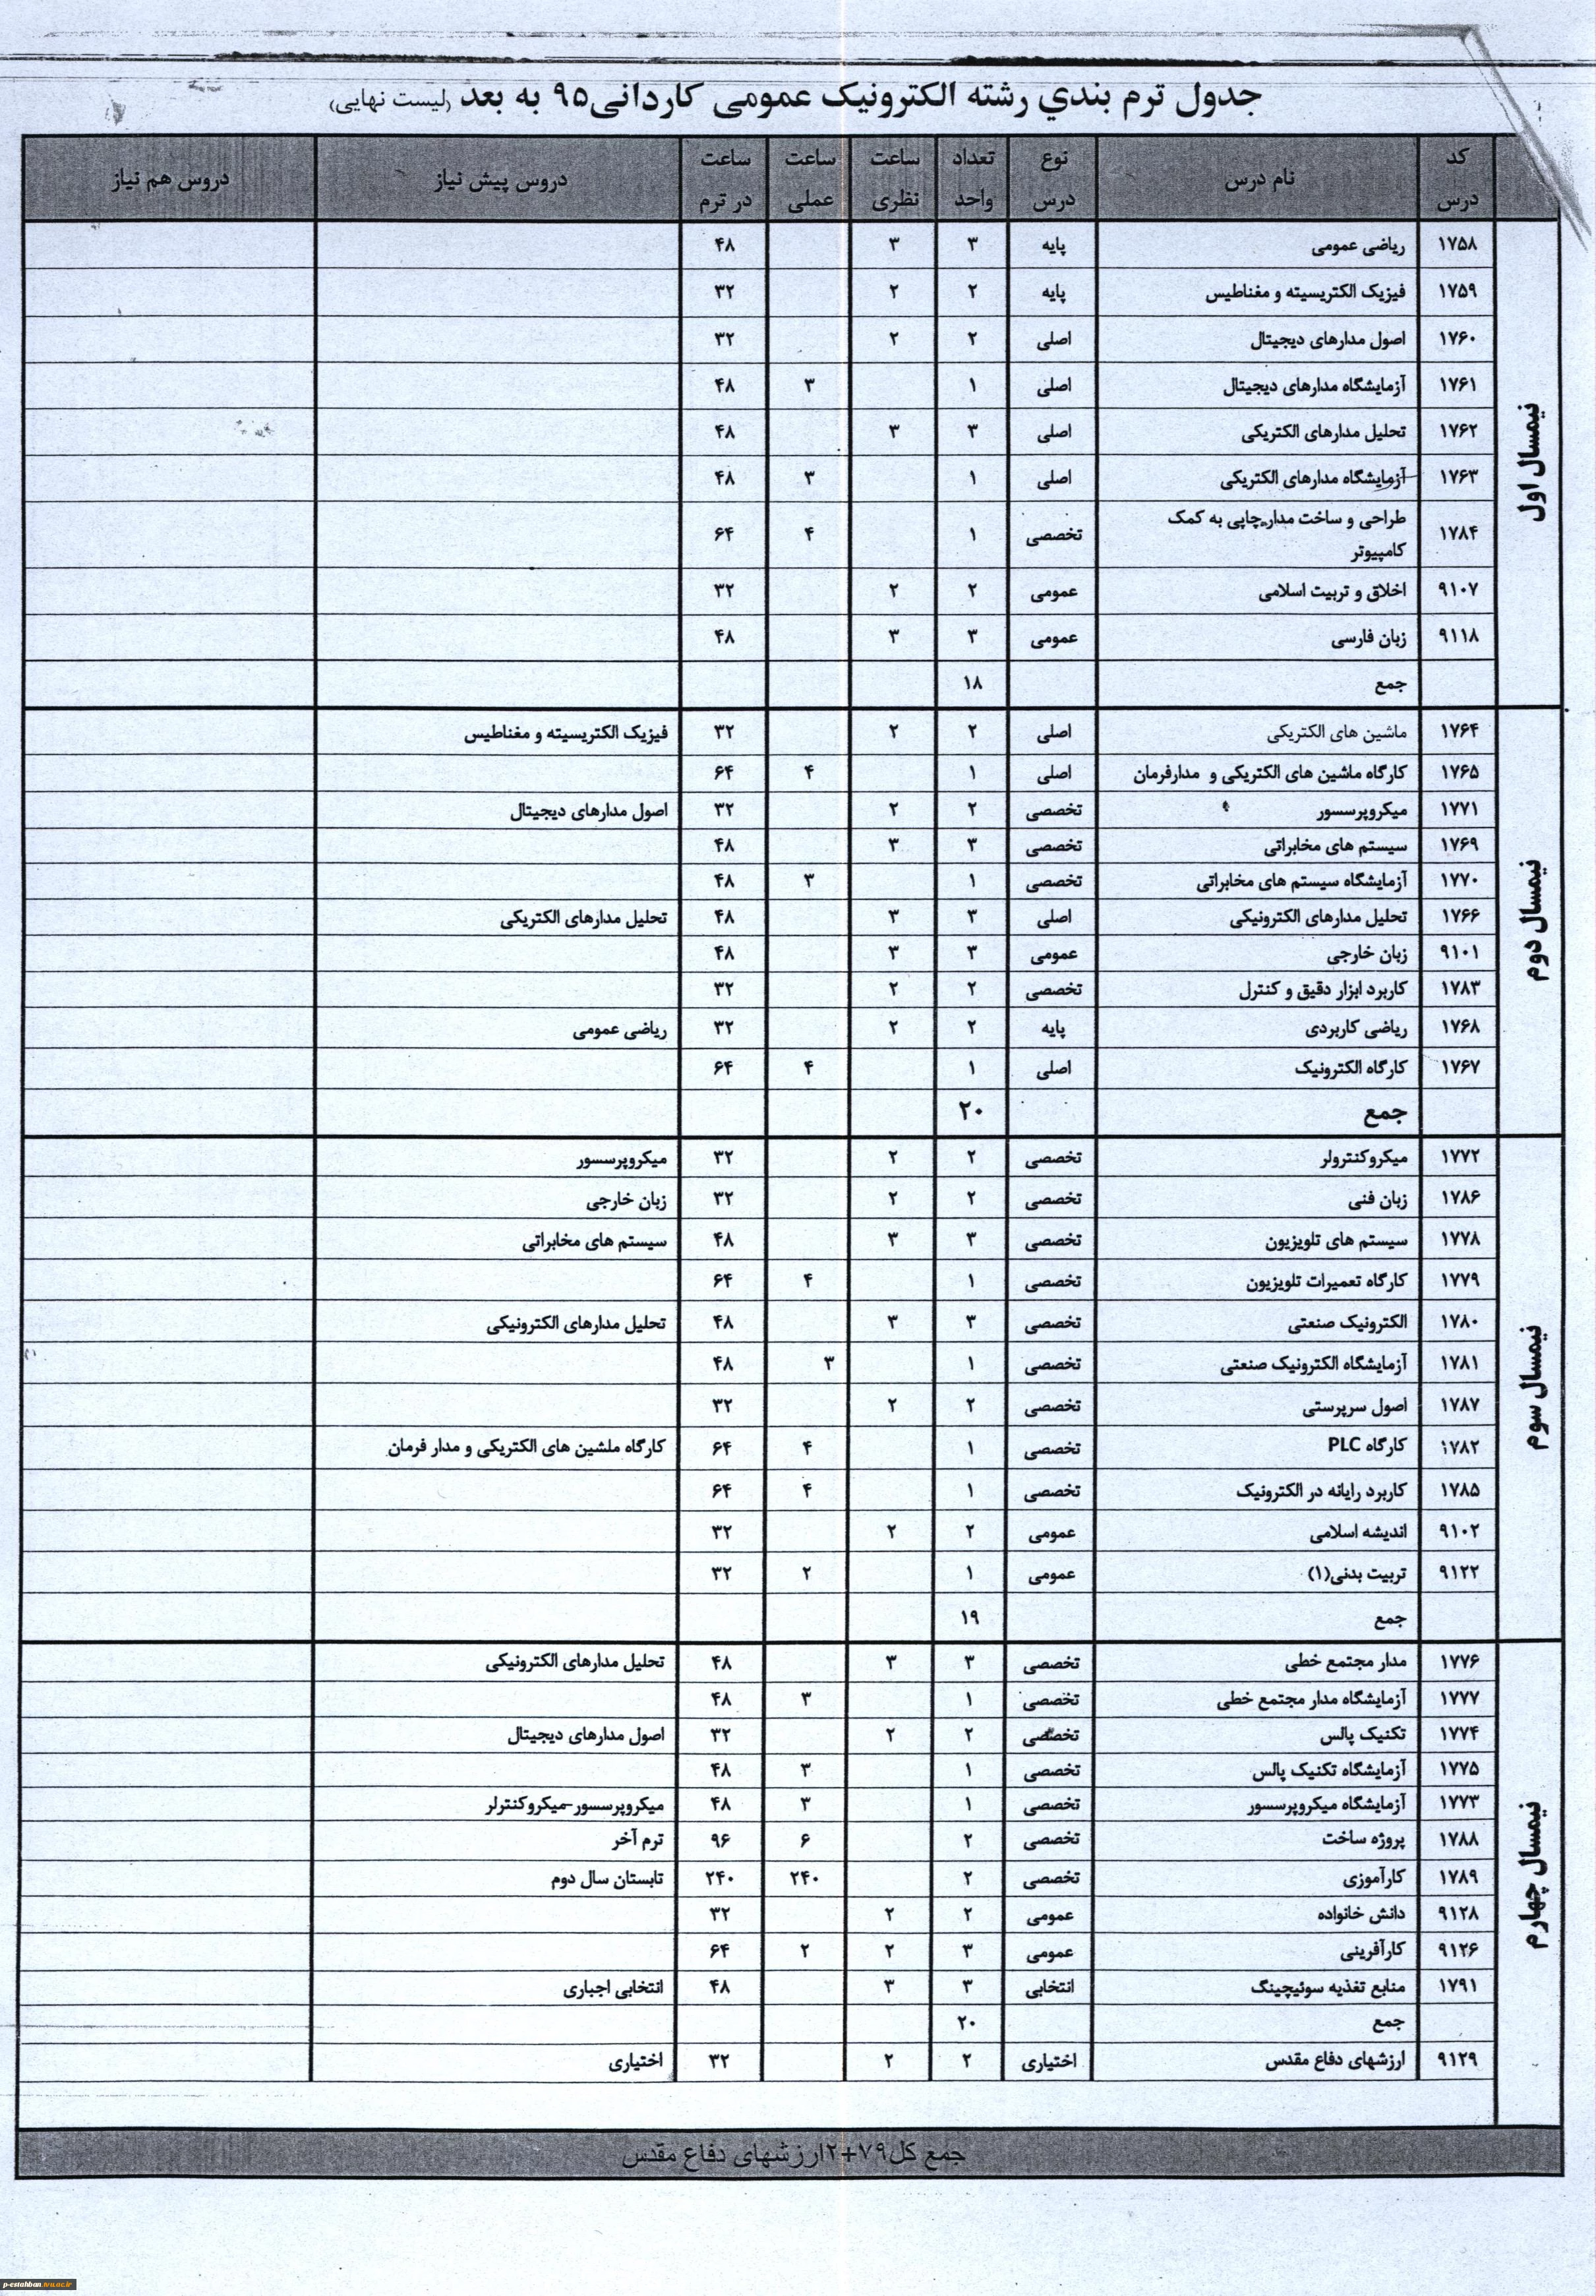 جدول ترم بندي رشته الکترونیک عمومی کاردانی۹۵ به بعد (لیست نهایی)
کد درس نام درس نوع درس تعداد واحد ساعت نظری ساعت عملی ساعت در ترم دروس پیش نیاز دروس هم نیاز
نیمسال اول
۱۷۵۸ ریاضی عمومی پایه ۳ ۳ ۴۸
۱۷۵۹ فیزیک الکتریسیته و مغناطیس پایه ۲ ۲ ۳۲
۱۷۶۰ اصول مدارهای دیجیتال اصلی ۲ ۲ ۳۲
۱۷۶۱ آزمایشگاه مدارهای دیجیتال اصلی ۱ ۳ ۴۸
۱۷۶۲ تحلیل مدارهای الکتریکی اصلی ۳ ۳ ۴۸
۱۷۶۳ آزمایشگاه مدارهای الکتریکی اصلی ۱ ۳ ۴۸
۱۷۸۴ طراحی و ساخت مدار چاپی به کمک
کامپیوتر تخصصی ۱ ۴ ۶۴
۹۱۰۷ اخلاق و تربیت اسلامی عمومی ۲ ۲ ۳۲
۹۱۱۸ زبان فارسی عمومی ۳ ۳ ۴۸
جمع ۱۸
نیمسال دوم
۱۷۶۴ ماشین های الکتریکی اصلی ۲ ۲ ۳۲ فیزیک الکتریسیته و مغناطیس
۱۷۶۵ کارگاه ماشین های الکتریکی و مدارفرمان اصلی ۱ ۴ ۶۴
۱۷۷۱ میکروپرسسور تخصصی ۲ ۲ ۳۲ اصول مدارهای دیجیتال
۱۷۶۹ سیستم های مخابراتی تخصصی ۳ ۳ ۴۸
۱۷۷۰ آزمایشگاه سیستم های مخابراتی تخصصی ۱ ۳ ۴۸
۱۷۶۶ تحلیل مدارهای الکترونیکی اصلی ۳ ۳ ۴۸ تحلیل مدارهای الکتریکی
۹۱۰۱ زبان خارجی عمومی ۳ ۳ ۴۸
۱۷۸۳ کاربرد ابزار دقیق و کنترل تخصصی ۲ ۲ ۳۲
۱۷۶۸ ریاضی کاربردی پایه ۲ ۲ ۳۲ ریاضی عمومی
۱۷۶۷ کارگاه الکترونیک اصلی ۱ ۴ ۶۴
جمع ۲۰
نیمسال سوم
۱۷۷۲ میکروکنترولر تخصصی ۲ ۲ ۳۲ میکروپرسسور
۱۷۸۶ زبان فنی تخصصی ۲ ۲ ۳۲ زبان خارجی
۱۷۷۸ سیستم های تلویزیون تخصصی ۳ ۳ ۴۸ سیستم های مخابراتی
۱۷۷۹ کارگاه تعمیرات تلویزیون تخصصی ۱ ۴ ۶۴
۱۷۸۰ الکترونیک صنعتی تخصصی ۳ ۳ ۴۸ تحلیل مدارهای الکترونیکی
۱۷۸۱ آزمایشگاه الکترونیک صنعتی تخصصی ۱ ۳ ۴۸
۱۷۸۷ اصول سرپرستی تخصصی ۲ ۲ ۳۲
۱۷۸۲ کارگاه PLC تخصصی ۱ ۴ ۶۴ کارگاه ملشین های الکتریکی و مدار فرمان
۱۷۸۵ کاربرد رایانه در الکترونیک تخصصی ۱ ۴ ۶۴
۹۱۰۲ اندیشه اسلامی عمومی ۲ ۲ ۳۲
۹۱۲۲ تربیت بدنی(۱) عمومی ۱ ۲ ۳۲
جمع ۱۹
نیمسال چهارم
۱۷۷۶ مدار مجتمع خطی تخصصی ۳ ۳ ۴۸ تحلیل مدارهای الکترونیکی
۱۷۷۷ آزمایشگاه مدار مجتمع خطی تخصصی ۱ ۳ ۴۸
۱۷۷۴ تکنیک پالس تخصصی ۲ ۲ ۳۲ اصول مدارهای دیجیتال
۱۷۷۵ آزمایشگاه تکنیک پالس تخصصی ۱ ۳ ۴۸
۱۷۷۳ آزمایشگاه میکروپرسسور تخصصی ۱ ۳ ۴۸ میکروپرسسور-میکروکنترلر
۱۷۸۸ پروژه ساخت تخصصی ۲ ۶ ۹۶ ترم آخر
۱۷۸۹ کارآموزی تخصصی ۲ ۲۴۰ ۲۴۰ تابستان سال دوم
۹۱۲۸ دانش خانواده عمومی ۲ ۲ ۳۲
۹۱۲۶ کارآفرینی عمومی ۳ ۲ ۲ ۶۴
۱۷۹۱ منابع تغذیه سوئیچینگ انتخابی ۳ ۳ ۴۸ انتخابی اجباری
جمع ۲۰
۹۱۲۹ ارزشهای دفاع مقدس اختیاری ۲ ۲ ۳۲ اختیاری
جمع کل۷۹+۲ارزشهای دفاع مقدس
p-estahban.tvu.ac.ir